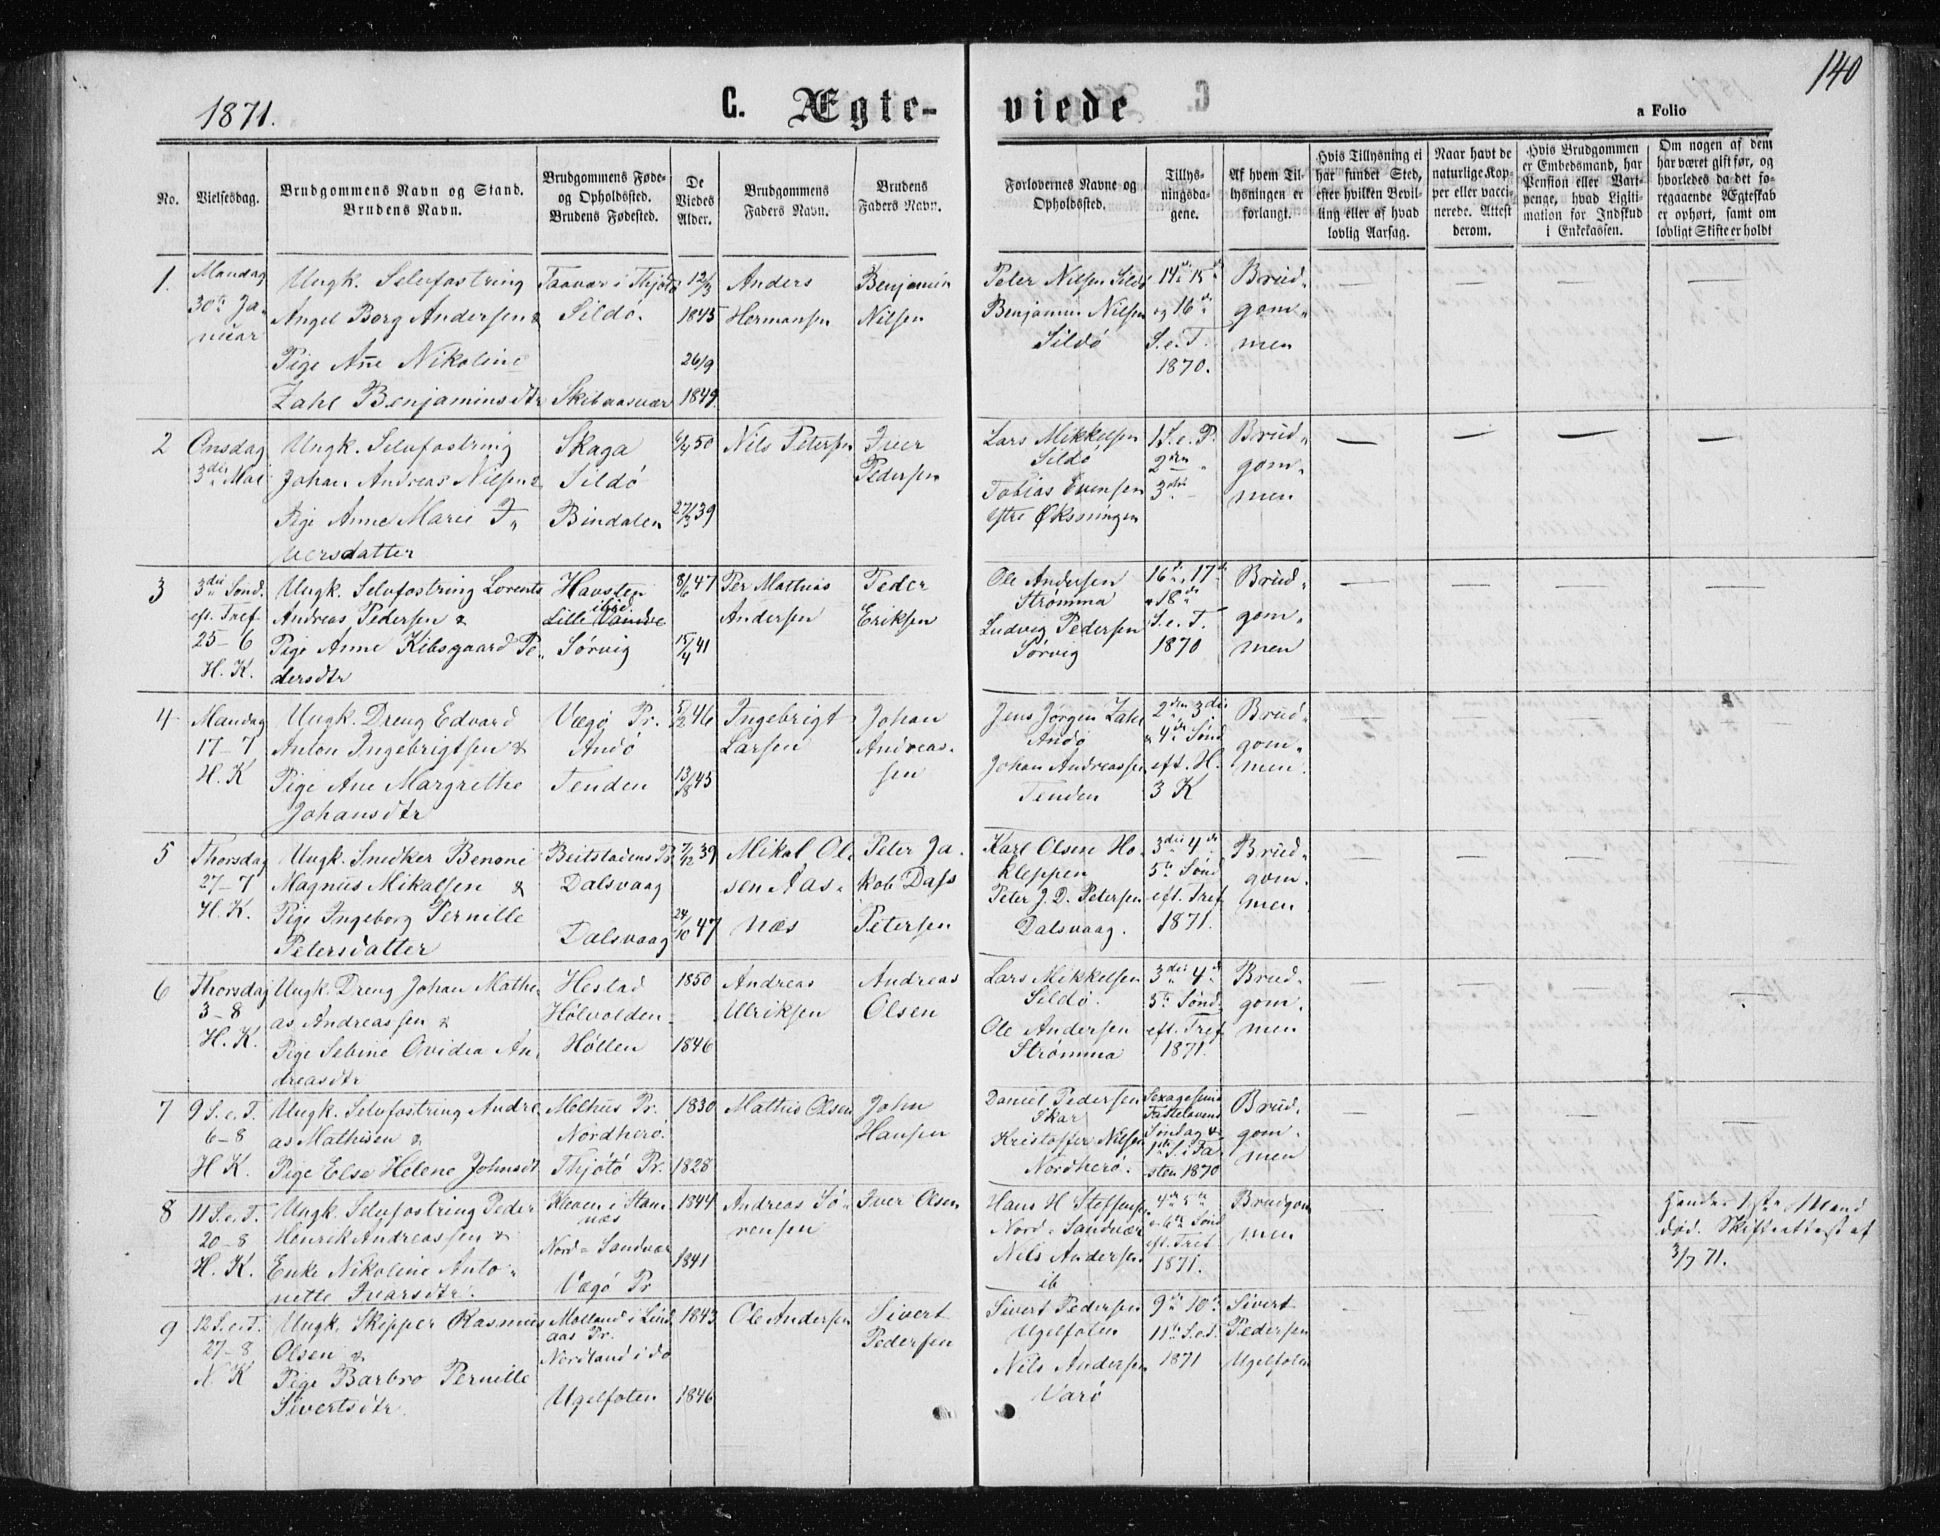 1871.
C. Ægte-
viede
a Folio
140
No.
Vielsesdag.
Brudgommens Navn og Stand.
Brudens Navn.
Brudgommens Føde-
og Opholdssted.
Brudens Fødested.
De
Viedes
Alder.
Brudgommens
Faders Navn.
Brudens
Faders Navn.
Forlovernes Navne og
Opholdssted.
Tillys-
ningsda-
gene.
Af hvem Til-
lysningen er
forlangt.
Hvis Tillysning ei
har fundet Sted,
efter hvilken Bevil-
ling eller af hvad
lovlig Aarsag.
Naar havt de
naturlige Kop-
per eller vacci-
nerede. Attest
derom.
Hvis Brudgommen
er Embedsmand, har
Pension eller Vart-
penge, hvad Ligiti-
mation for Indskud
i Enkekassen.
Om nogen af dem
har været gift før, og
hvorledes da det fo-
regaaende Ægteskab
er ophørt, samt om
lovligt Skifte er holdt
1.
Mandag
30te Ja-
nuar
Ungk. Selvfostring
Angel Borg Andersen &
Pige Ane Nikoline
Zahl Benjaminsdtr
Taavær i Thjøtø
Sildø.
Skibaasvær
12/3
1845
26/9
1849.
Anders
Hermansen
Benjamin
Nilsen
Peter Nilsen Sildø
Benjamin Nilsen
Sildø
14de 15de
og 16de
S. e. T.
1870.
Brud-
gom-
men
2
Onsdag
3die Mai
Ungk. Selvfostring
Johan Andreas Nilsen &
Pige Anne Marie I-
versdatter
Skaga
Sildø
Bindalen
6/4 50
27/3 39
Nils Petersen
Iver
Pedersen
Lars Mikkelsen
Sildø
Tobias Evensen
ytre Øksningen
1 S. e. P.
2den "
3die -
Brud-
gom-
men
3
3die Sønd.
eft. Tref.
25-6
H. K.
Ungk. Selvfostring Lorents
Andreas Pedersen &
Pige Anne Kibsgaard Pe-
dersdtr
Havsten
ibid.
Lille Vandve
Sørvig
8/6 47
15/4 41
Per Mathias
Andersen
Peder
Eriksen
Ole Andersen
Strømma
Ludvig Pedersen
Sørvig
16de, 17de
& 18de
S. e. T.
1870
Brud-
gom-
men
4
Mandag
17-7
H. K
Ungk. Dreng Edvard
Anton Ingebrigtsen &
Pige Ane Margrethe
Johansdtr
Vægø Pr.
Andø
Tenden
5/2 46
13/8 45
Ingebrigt
Larsen
Johan
Andreas-
sen
Jens Jørgen Zahl
Andø
Johan Andreassen
Tenden
2den 3die
& 4de Sønd
eft. H.
3 K
Brud-
gom-
men.
5
Thorsdag
27-7
H. K.
Ungk. Snedker Benoni
Magnus Mikalsen &
Pige Ingeborg Pernille
Petersdatter
Beitstadens Pr
Dalsvaag
Dalsvaag
7/12 39
24/10 47
Mikal Ol-
sen Aas-
næs
Peter Ja-
kob Dass
Petersen
Karl Olsen Ho-
kleppen
Peter J. D. Petersen
Dalsvaag.
3die 4de
5te Sønd
eft. Tref
1871.
Brud-
gom-
men
6
Thorsdag
3-8
H. K.
Ungk. Dreng Johan Mathi-
as Andreassen &
Pige Sebine Ovidia An-
dreasdtr
Hestad
Hølvolden
Høllen
1850
1846
Andreas
Ulriksen
Andreas
Olsen
Lars Mikkelsen
Sildø.
Ole Andersen
Strømma
3die 4de
5te Sønd.
eft. Tref
1871.
Brud-
gom-
men
7
9 S. e. T.
6-8
H K.
Ungk. Selvfostring Andre-
as Mathisen &
Pige Else Helene Johnsdt
Melhus Pr.
Nordherø.
Thjøtø Pr.
1830
1828
Mathis Olsen
John
Hansen
Daniel Pedersen
Skar
Kristoffer Nilsen
Nordherø.
Sexagesima
Fastelavens
Søndag &
1ste S. i Fa-
sten 1870
Brud-
gom-
men
8
11 S. e. T.
20-8
H. K.
Ungk. Selvfostring Peder
Henrik Andreassen &
Enke Nikoline Anto-
nette Ivarsdtr.
Hæven i Stam-
næs
Nord-Sandvær
Vægø Pr
1844
1841
Andreas Sø-
rensen
Iver Olsen
Hans H Steffensen
Nord-Sandvær
Nils Andersen
ib
4de 5te
& 6te Sønd
eft. Tref
1871.
Brudgom
men
Hendes 1ste Mand
død. Skifteattest af
3/7 71.
9
12 S. e. T.
27-8
N K
Ungk. Skipper Rasmus
Olsen &
Pige Barbro Pernille
Sivertsdtr.
Molland i Lind
aas Pr.
Nordland i do
Ugelfoten
1843
1846
Ole Andersen
Sivert
Pedersen
Sivert Pedersen
Ugelfoten
Nils Andersen
Varø
9de 10de
11te S. e. T.
1871
Sivert
Pedersen
Ugelfoten